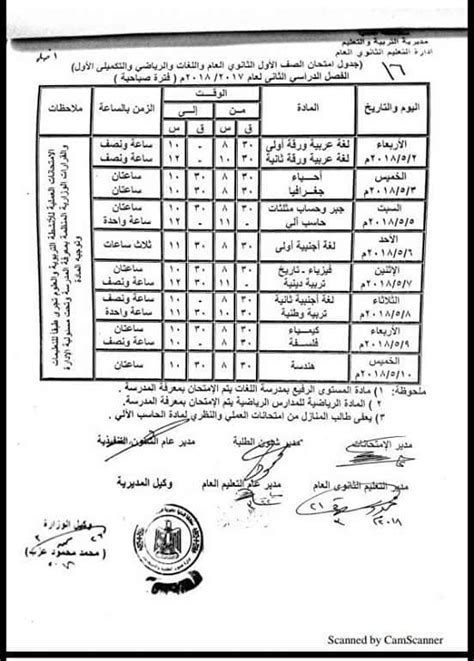 مديرية التربية والتعليم
إدارة التعليم الثانوي العام
١٦
(جدول امتحان الصف الأول الثانوي العام واللغات والرياضي والتكميلى الأول)
الفصل الدراسي الثاني لعام ٢٠١٧/ ٢٠١٨م ( فترة صباحية )
اليوم والتاريخ المادة الوقت الزمن بالساعة ملاحظات
مـن إلـى
ق س ق س
الأربعاء لغة عربية ورقة أولى ٣٠ ٨ - ١٠ ساعة ونصف
٢٠١٨/٥/٢م لغة عربية ورقة ثانية ٣٠ ١٠ - ١٢ ساعة ونصف
الخميس أحيـاء ٣٠ ٨ ٣٠ ١٠ ساعتان
٢٠١٨/٥/٣م جغرافيا ٣٠ ١٠ ٣٠ ١٢ ساعتان
السبت جبر وحساب مثلثات ٣٠ ٨ ٣٠ ١٠ ساعتان
٢٠١٨/٥/٥م حاسب آلي - ١١ - ١٢ ساعة واحدة
الأحد لغة أجنبية أولى ٣٠ ٨ ٣٠ ١١ ثلاث ساعات
٢٠١٨/٥/٦م
الإثنين فيزياء - تاريخ ٣٠ ٨ ٣٠ ١٠ ساعتان
٢٠١٨/٥/٧م تربية دينية ٣٠ ١٠ - ١٢ ساعة ونصف
الثلاثاء لغة أجنبية ثانية ٣٠ ٨ - ١٠ ساعة ونصف
٢٠١٨/٥/٨م تربية وطنية ٣٠ ١٠ ٣٠ ١١ ساعة واحدة
الأربعاء كيميـاء ٣٠ ٨ ٣٠ ١٠ ساعتان
٢٠١٨/٥/٩م فلسفـة ٣٠ ١٠ - ١٢ ساعة ونصف
الخميس هندسة ٣٠ ٨ ٣٠ ١٠ ساعتان
٢٠١٨/٥/١٠م
الامتحانات العملية للأنشطة التربوية والعلوم تجرى طبقا للتعليمات
والقرارات الوزارية المنظمة بمعرفة المدرسة وتحت مسئولية الإدارة
وتوجيه المادة
ملحوظة: ١ ) مادة المستوى الرفيع بمدرسة اللغات يتم الإمتحان بمعرفة المدرسة .
٢ ) المادة الرياضية للمدارس الرياضية يتم الإمتحان بمعرفة المدرسة .
٣ ) يعفى طالب المنازل من امتحانات العملي والنظري لمادة الحاسب الألي .
مدير الإمتحانات مدير شئون الطلبة مدير عام الشئون التنفيذية
مدير التعليم الثانوي العام مدير عام التعليم العام وكيل المديرية
٢٠١٨
وكيل الوزارة
( محمد محمود عزب )
Scanned by CamScanner